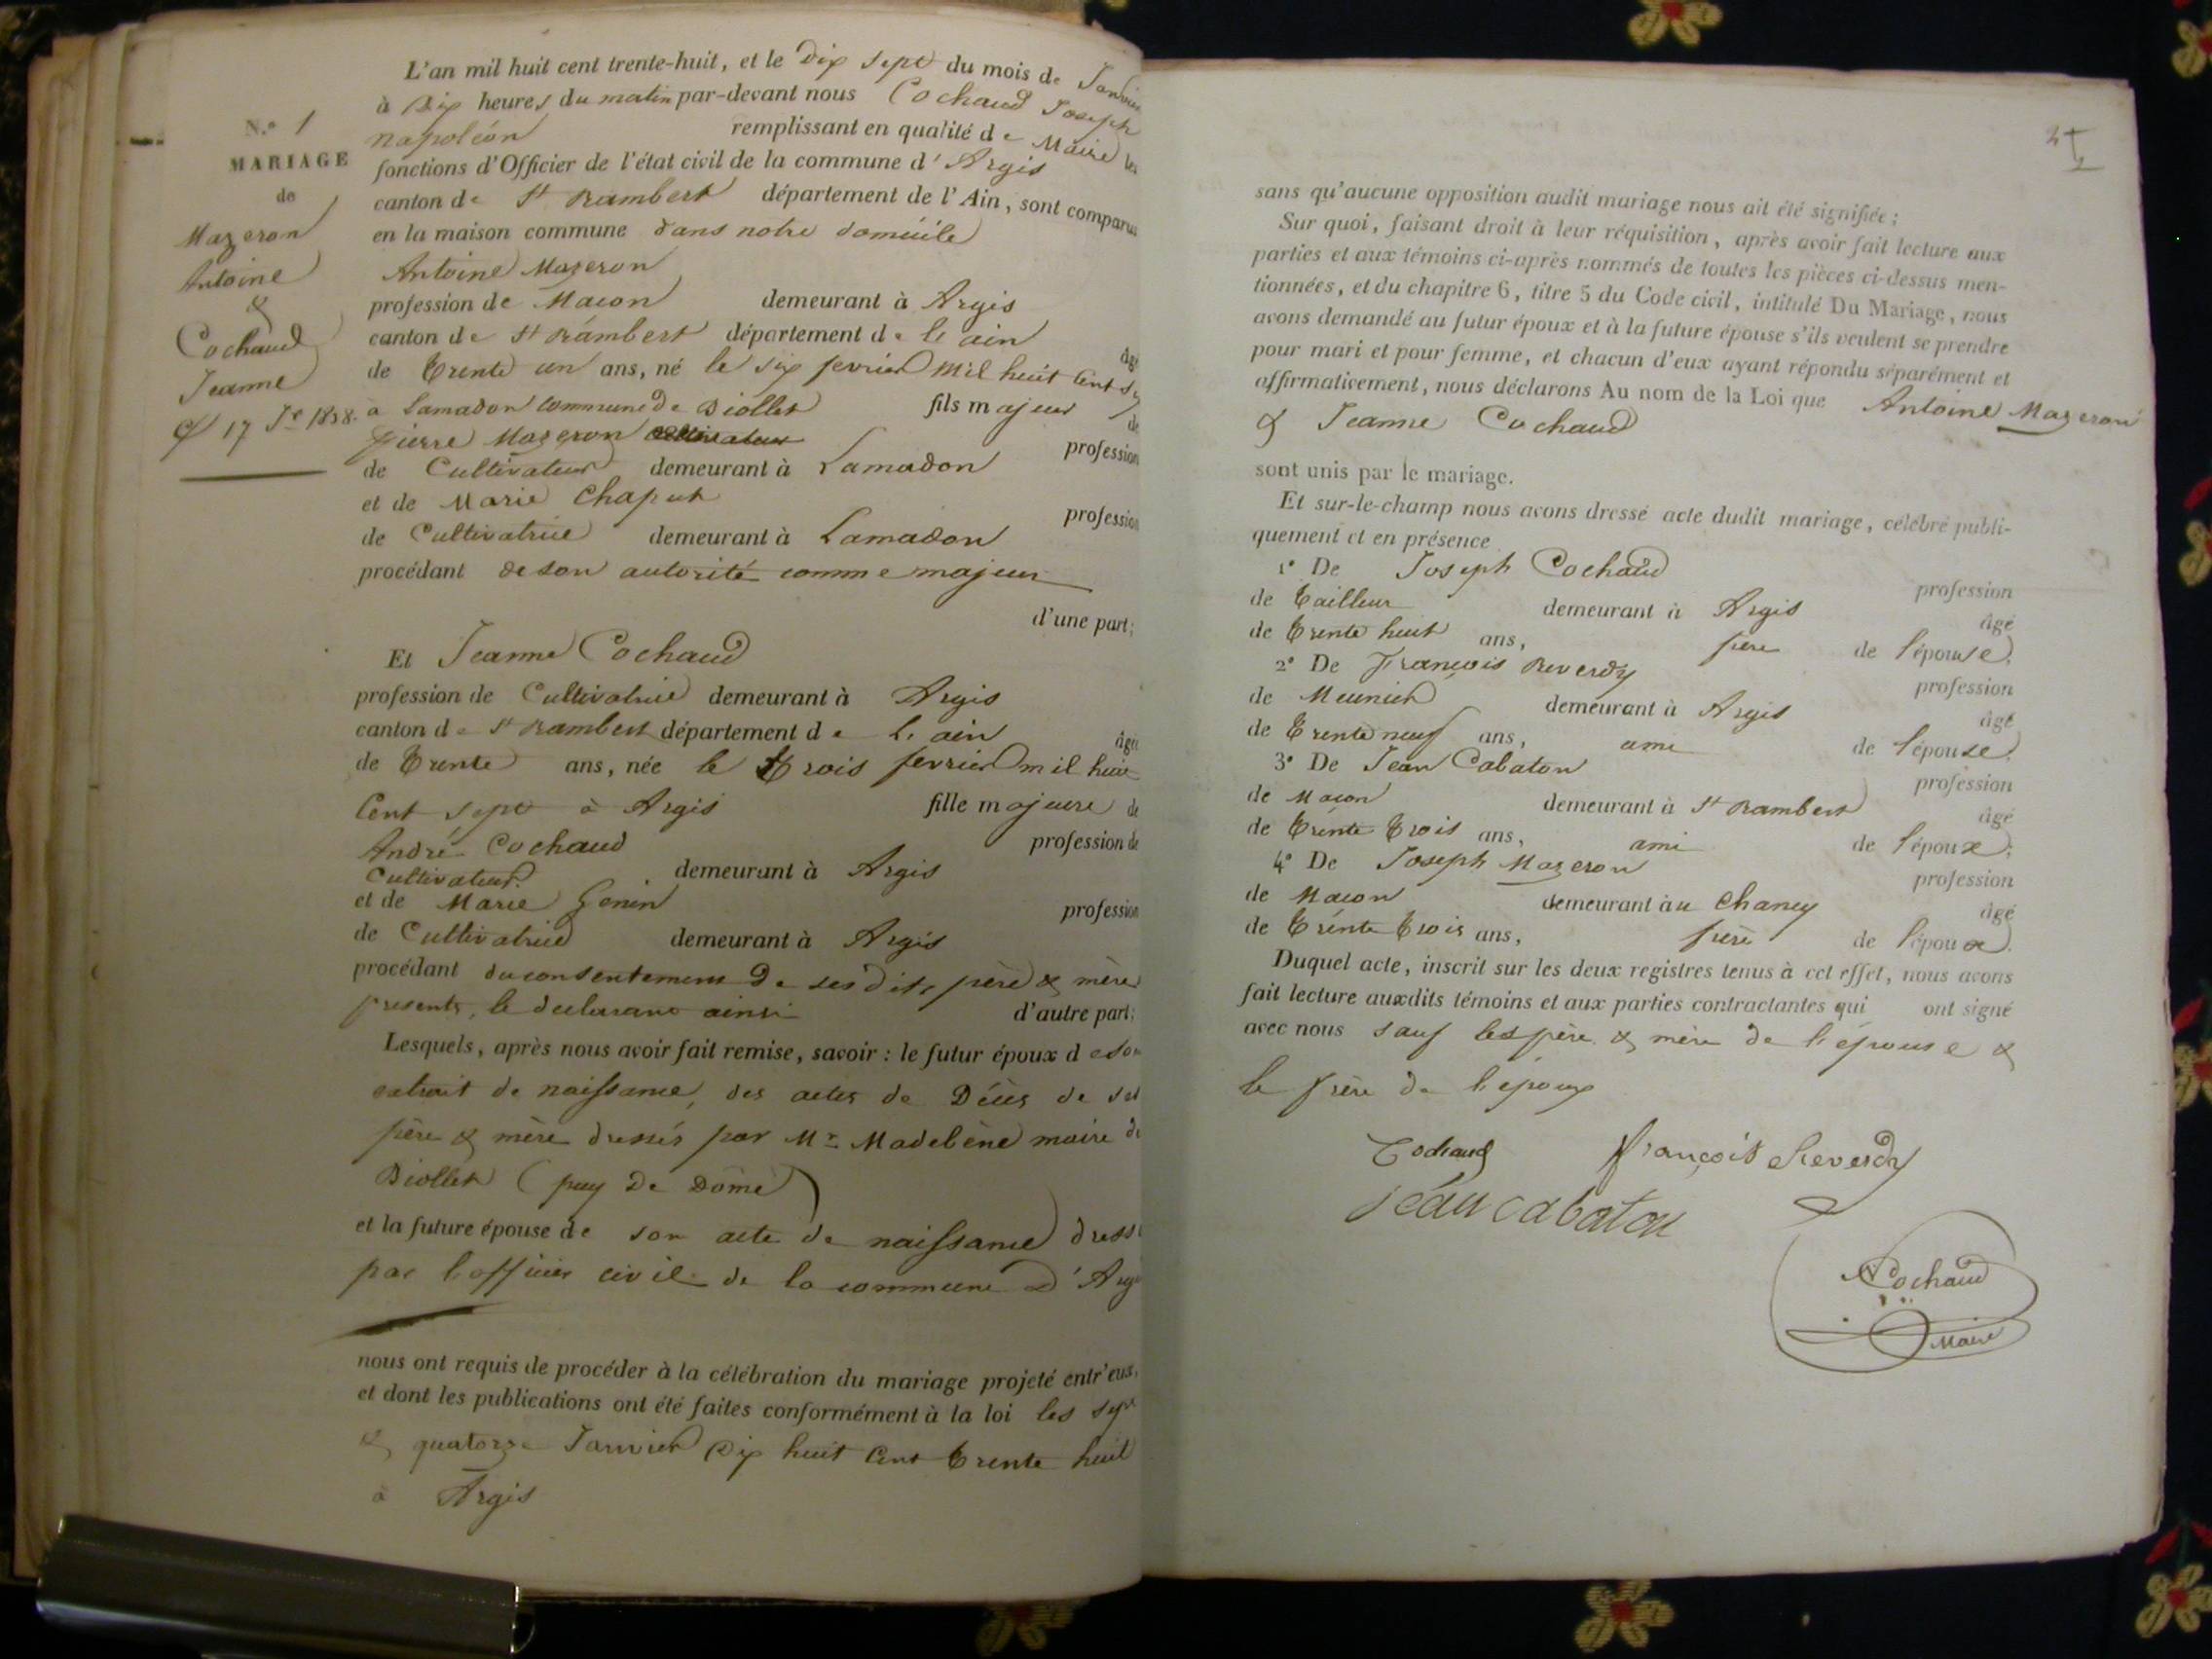 N.º 1
MARIAGE
de
Mazeron
Antoine
&
Cochaud
Jeanne
17 Jer 1838.
L'an mil huit cent trente-huit, et le dix sept du mois de Janvier
à Dix heures du matin par-devant nous Cochaud Joseph
Napoléon remplissant en qualité de Maire les
fonctions d'Officier de l'état civil de la commune d'Argis
canton de St Rambert département de l'Ain, sont comparus
en la maison commune dans notre domicile
Antoine Mazeron
profession de Macon demeurant à Argis
canton de St Rambert département de l'ain
âgé
de trente un ans, né le six fevrier mil huit Cent
à Lamadon Commune De Biollet fils majeur de
pierre Mazeron cultivateur profession
de Cultivateur demeurant à Lamadon
et de Marie Chaput profession
de Cultivatrice demeurant à Lamadon
procédant de son autorité comme majeur
d'une part;
Et Jeanne Cochaud
profession de Cultivatrice demeurant à Argis
canton de St Rambert département de l'ain
âgée
de trente ans, née le trois fevrier mil huit
Cent sept à Argis fille majeure de
André Cochaud profession de
Cultivateur. demeurant à Argis
et de Marie Genin profession
de Cultivatrice demeurant à Argis
procédant du consentement De ses dits père & mère
presents, le declarant ainsi d'autre part;
Lesquels, après nous avoir fait remise, savoir : le futur époux de son
extrait de naissance, des actes de Décès de ses
père & mère dressés par Mr Madebène maire de
Biollet (puy De Dôme)
et la future épouse de son acte de naissance dressé
par l'officier civil de la commune d'Argis
nous ont requis de procéder à la célébration du mariage projeté entr'eux,
et dont les publications ont été faites conformément à la loi les sept
& quatorze Janvier Dix huit Cent trente huit
à Argis
sans qu'aucune opposition audit mariage nous ait été signifiée;
Sur quoi, faisant droit à leur réquisition, après avoir fait lecture aux
parties et aux témoins ci-après nommés de toutes les pièces ci-dessus men-
tionnées, et du chapitre 6, titre 5 du Code civil, intitulé Du Mariage, nous
avons demandé au futur époux et à la future épouse s'ils veulent se prendre
pour mari et pour femme, et chacun d'eux ayant répondu séparément et
affirmativement, nous déclarons Au nom de la Loi que Antoine Mazeron
& Jeanne Cochaud
sont unis par le mariage.
Et sur-le-champ nous avons dressé acte dudit mariage, célébré publi-
quement et en présence
1º De Joseph Cochaud profession
de tailleur demeurant à Argis âgé
de trente huit ans, frere de l'épouse;
2º De François Reverdy profession
de Meunier demeurant à Argis âgé
de trente neuf ans, ami de l'épouse;
3º De Jean Cabaton profession
de Macon demeurant à St Rambert âgé
de trente trois ans, ami de l'époux;
4º De Joseph Mazeron profession
de Macon demeurant au Chaney âgé
de trente trois ans, frère de l'époux.
Duquel acte, inscrit sur les deux registres tenus à cet effet, nous avons
fait lecture auxdits témoins et aux parties contractantes qui ont signé
avec nous sauf les père & mère de l'épouse &
le frère de l'époux
Cochaud François Reverdy
jean cabaton
NCochaud
Maire